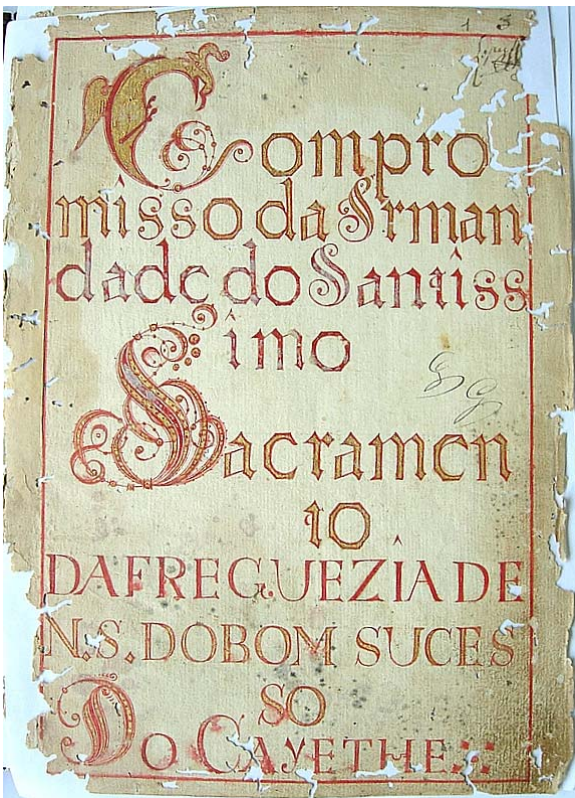 1 3
Compro
misso da Irman
dade do Santiss
imo
Sacramen
to
DA FREGUEZIA DE
N. S. DO BOM SUCES
SO
DO CAYETHE